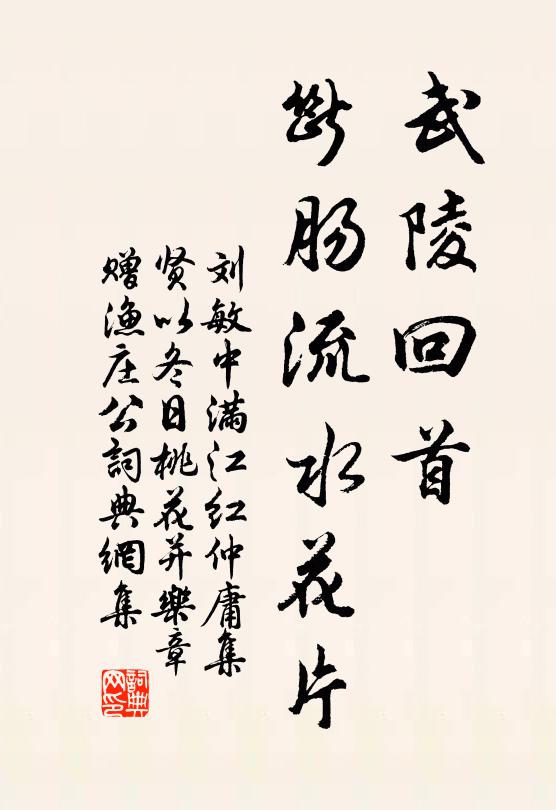 武陵回首
断肠流水花片
刘敏中满江红仲庸集
贤以冬日桃花并樂章
赠漁庄公詞典網集
詞典
网印